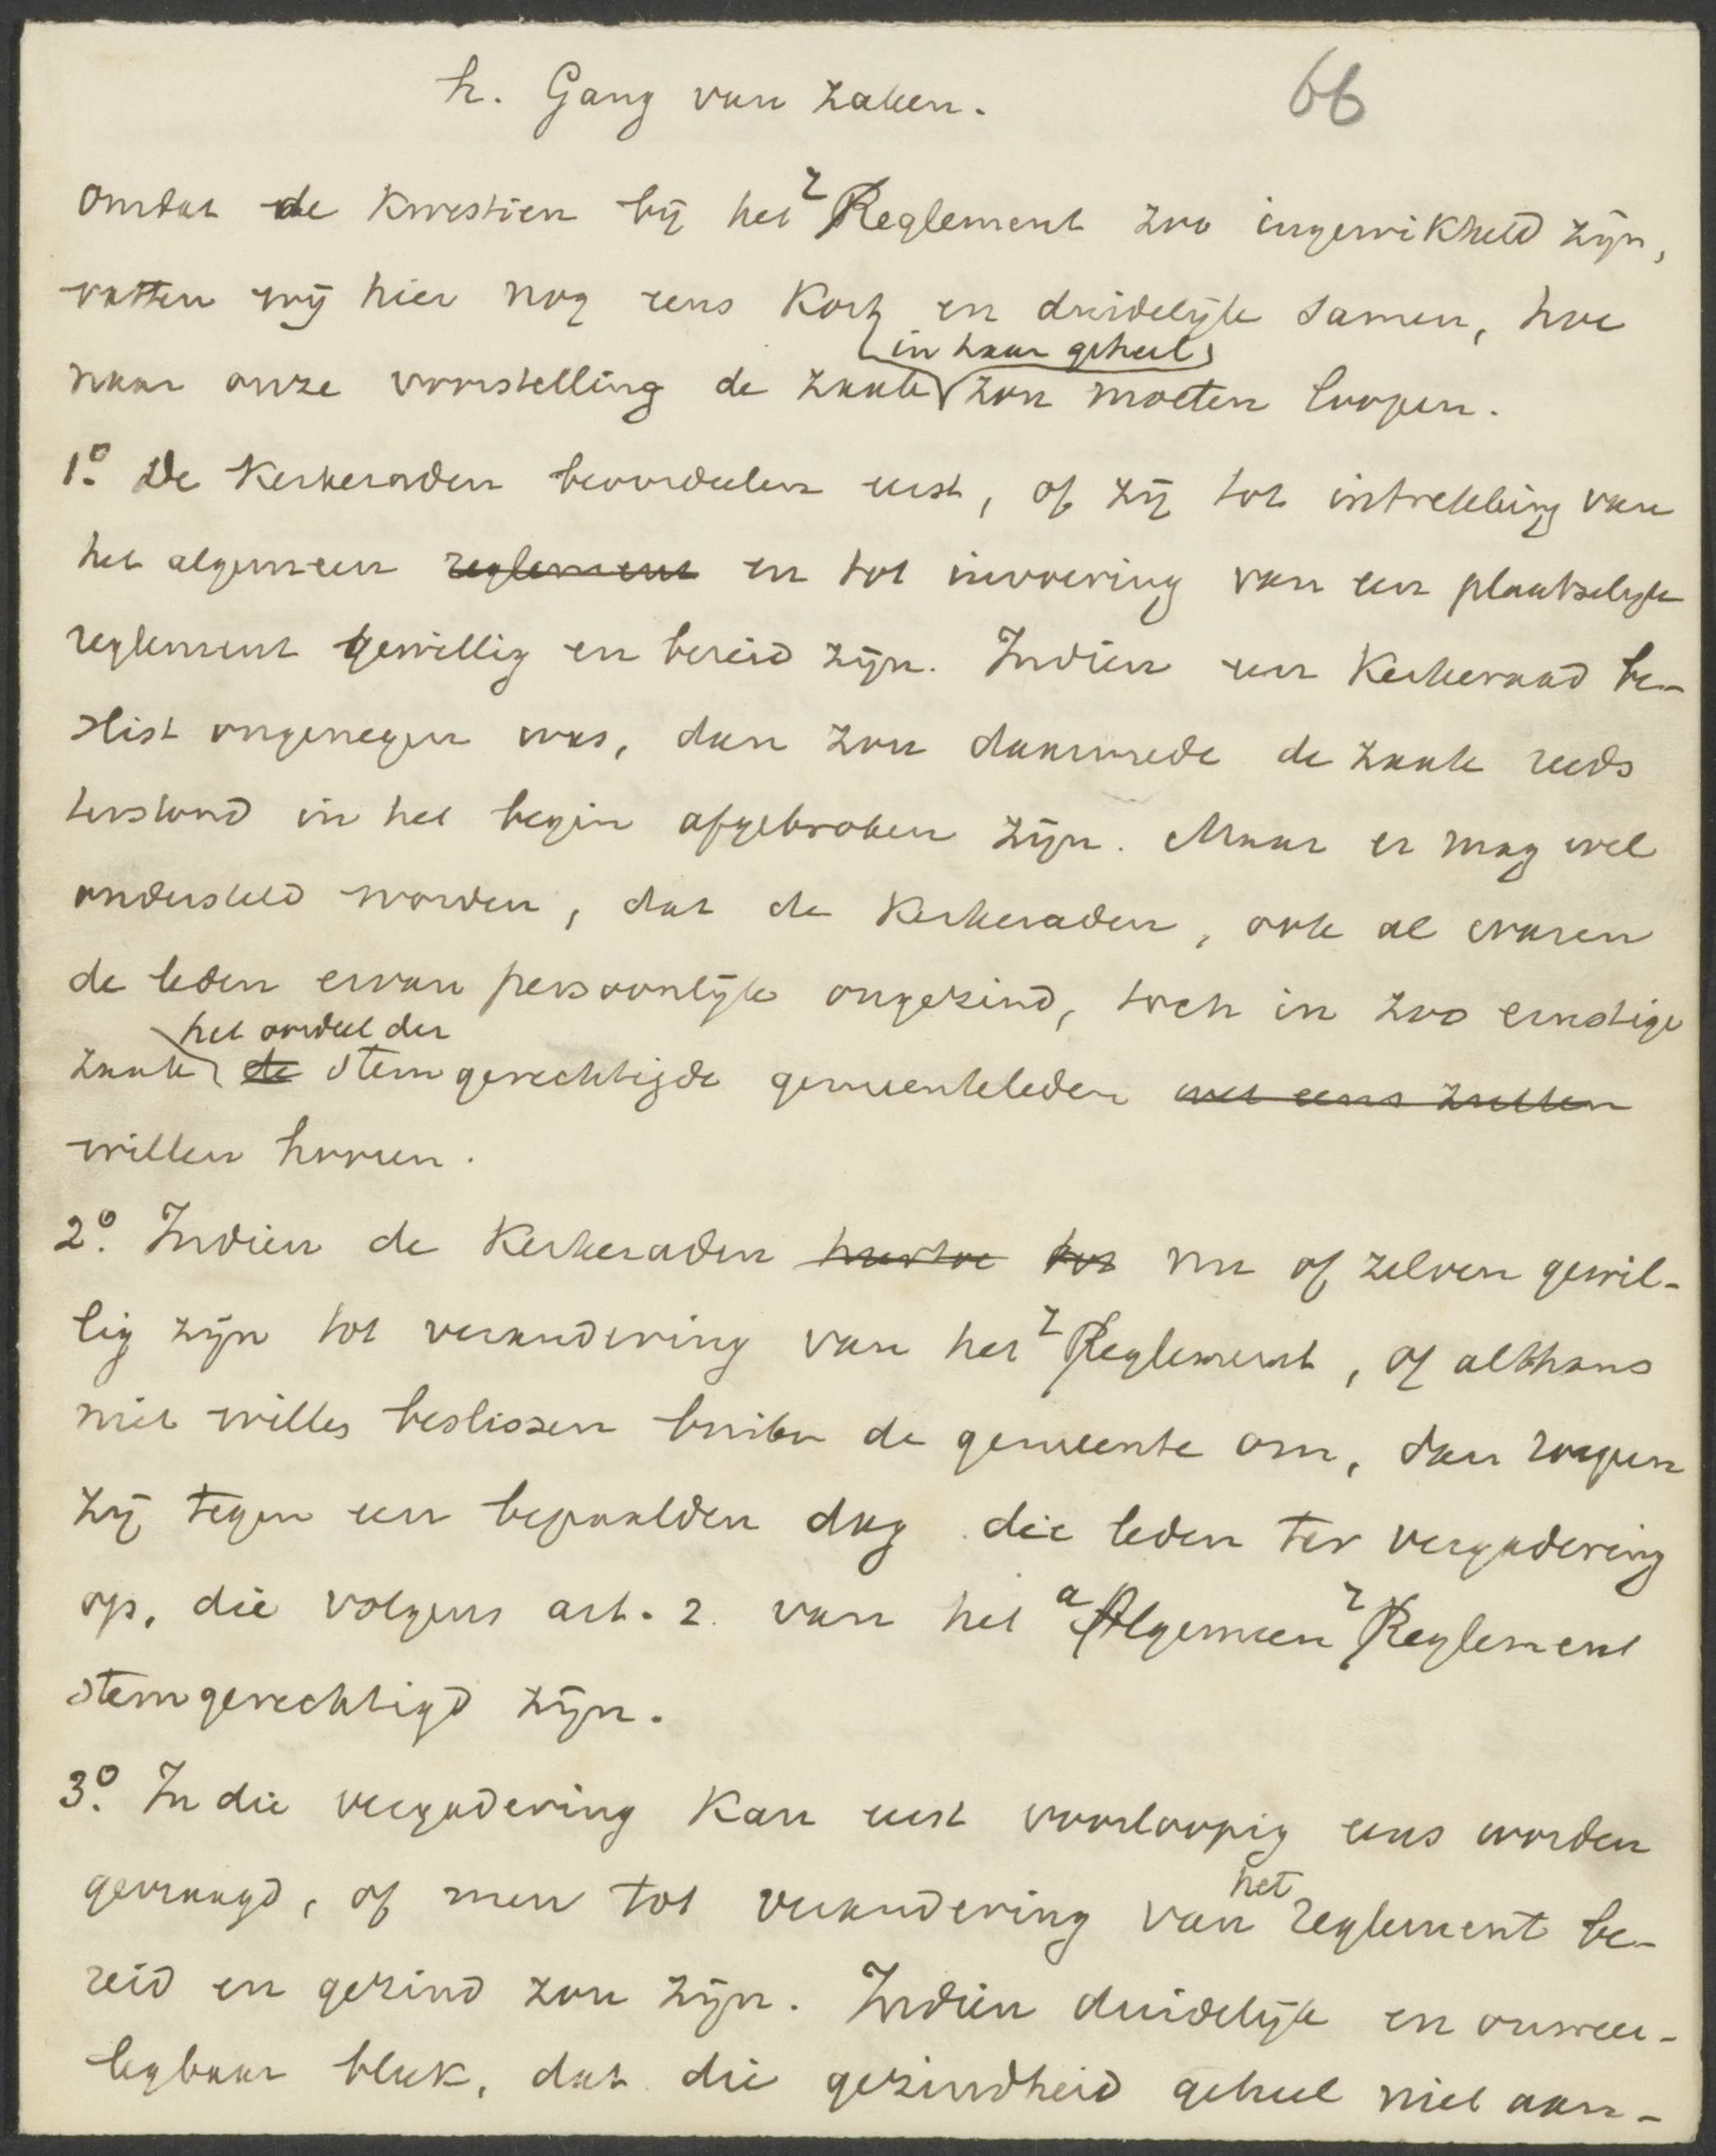 h. Gang van zaken.
66
Omdat de Kwestien bij het reglement zoo ingewikkeld zijn,
vatten wij hier nog eens Kort en duidelijk samen, hoe
naar onze voorstelling de zaak in haar geheel zou moeten loopen.
1o. De Kerkeraden beoordeelen eerst, of zij tot intrekking van
het algemeen reglement en tot invoering van een plaatselijk
reglement gewillig en bereid zijn. Indien een Kerkeraad be-
slist ongenegen was, dan zou daarmede de zaak reeds
terstond in het begin afgebroken zijn. Maar er mag wel
ondersteld worden, dat de Kerkeraden, ook al waren
de leden ervan persoonlijk ongezind, toch in zoo ernstige
zaak het oordeel der stemgerechtigde gemeenteleden wel eens zullen
willen hooren.
2o. Indien de Kerkeraden hiertoe tot nu of zelven gewil-
lig zijn tot verandering van het reglement, of althans
niet willen beslissen buiten de gemeente om, dan roepen
zij tegen een bepaalden dag die leden ter vergadering
op, die volgens art. 2. van het algemeen reglement
stemgerechtigd zijn.
3o. In die vergadering Kan eerst voorloopig eens worden
gevraagd, of men tot verandering van het reglement be-
reid en gezind zou zijn. Indien duidelijk en onweer-
legbaar bleek, dat die gezindheid geheel niet aan-